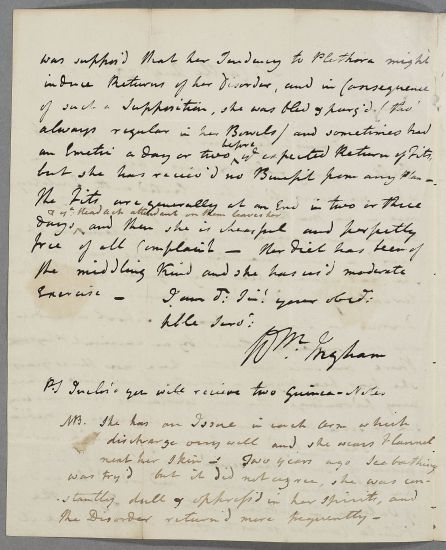 was suppos'd that her Tendency to Plethora might
induce Returns of her Disorder, and in Consequence
of such a Supposition, she was bled & purg'd (tho'
always regular in her Bowels) and sometimes had
an Emetic a day or two before ye expected Return of Fits,
but she has receiv'd no Benefit from any Plan —
The Fits are generally at an End in two or three
days, & ye Headach attendant on them leaves her
and then she is chearful and perfectly
free of all Complaint — Her Diet has been of
the middling Kind and she has us'd moderate
Exercise — I am Dr. Sir your obedt.
Hble Servt.
Wm. Ingham
PS Inclos'd you will recieve two Guinea-Notes
NB. She has an Issue in each Arm which
discharge very well and she wears Flannel
next her Skin — Two years ago Sea bathing
was try'd but it did not agree, she was con-
stantly dull & oppress'd in her Spirits, and
the Disorder return'd more frequently —